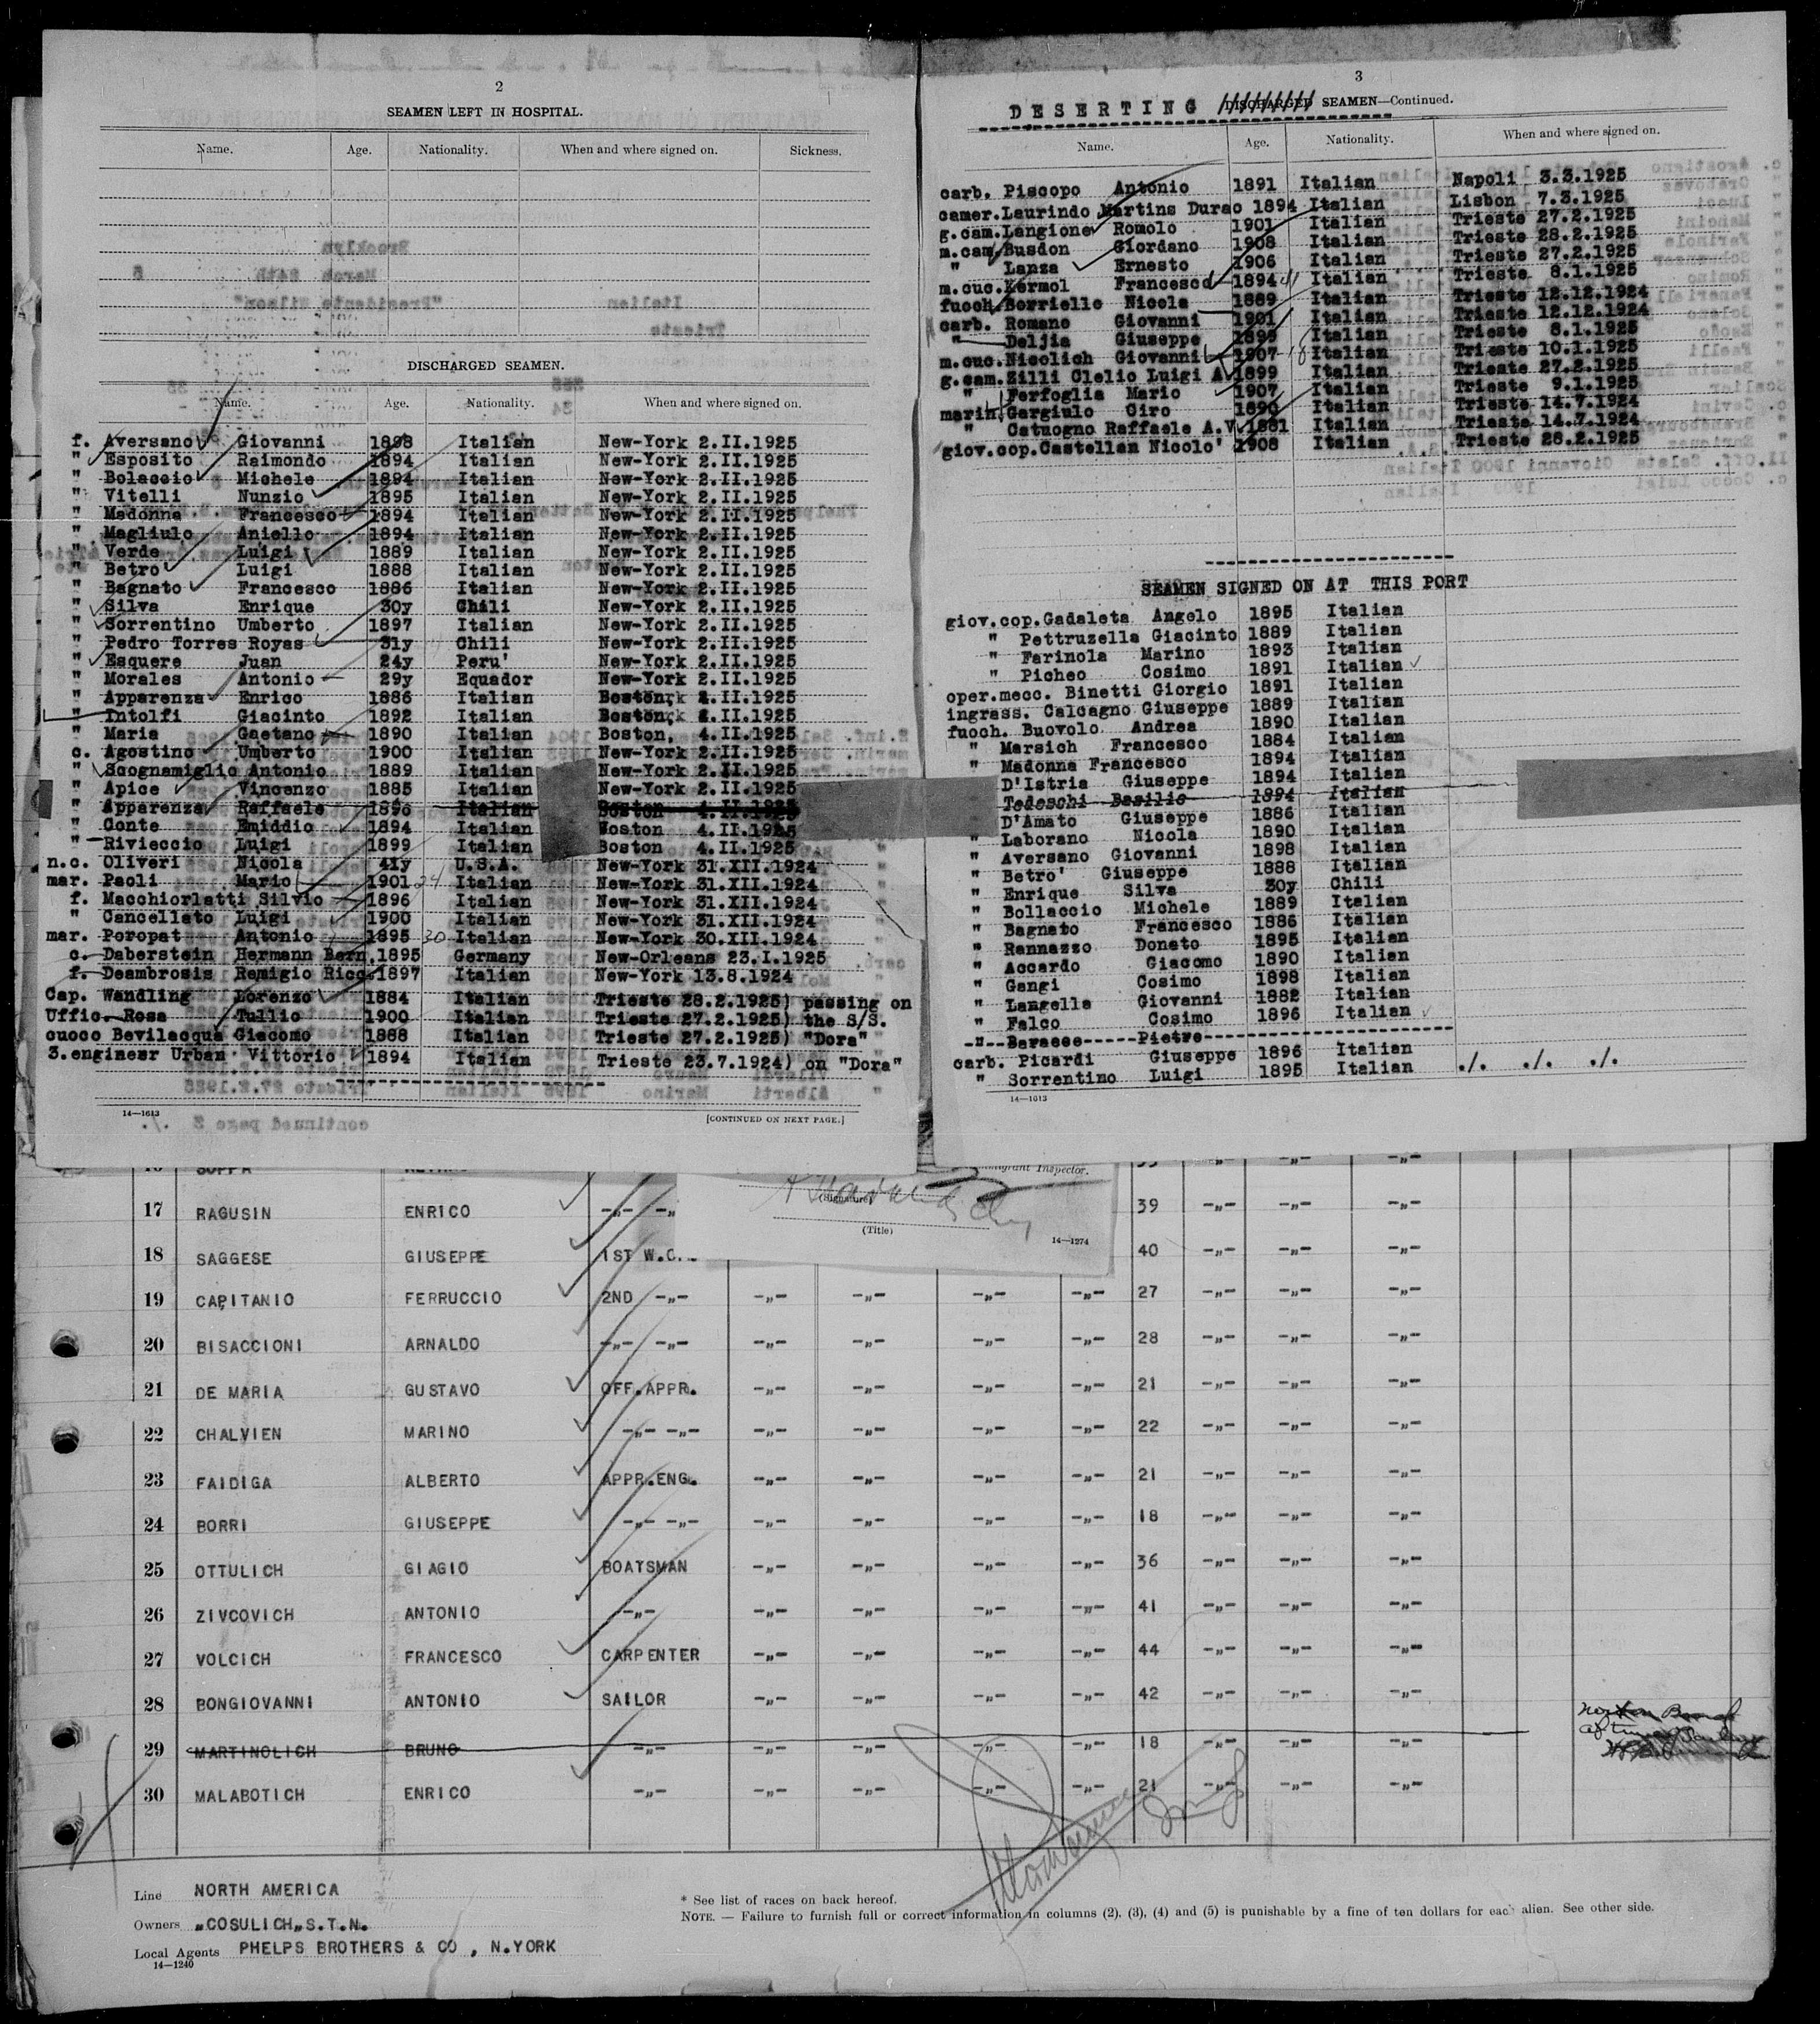 2
SEAMEN LEFT IN HOSPITAL.
Name. Age. Nationality. When and where signed on. Sickness.
DISCHARGED SEAMEN.
Name. Age. Nationality. When and where signed on.
f. Aversano Giovanni 1898 Italian New-York 2.II.1925
" Esposito Raimondo 1894 Italian New-York 2.II.1925
" Bolaccio Michele 1894 Italian New-York 2.II.1925
" Vitelli Nunzio 1895 Italian New-York 2.II.1925
" Madonna Francesco 1894 Italian New-York 2.II.1925
" Magliulo Aniello 1894 Italian New-York 2.II.1925
" Verde Luigi 1889 Italian New-York 2.II.1925
" Betro' Luigi 1888 Italian New-York 2.II.1925
" Bagnato Francesco 1886 Italian New-York 2.II.1925
" Silva Enrique 30y Chili New-York 2.II.1925
" Sorrentino Umberto 1897 Italian New-York 2.II.1925
" Pedro Torres Royas 31y Chili New-York 2.II.1925
" Esquere Juan 24y Peru' New-York 2.II.1925
" Morales Antonio 29y Equador New-York 2.II.1925
" Apparenza Enrico 1886 Italian Boston, .II.1925
" Intolfi Giacinto 1892 Italian Boston, .II.1925
" Maria Gaetano 1890 Italian Boston, 4.II.1925
c. Agostino Umberto 1900 Italian New-York 2.II.1925
" Scognamiglio Antonio 1889 Italian New-York 2.II.1925
" Apice Vincenzo 1885 Italian New-York 2.II.1925
" Apparenza Raffaele 1896 Italian Boston 4.II.1925
" Conte Emiddio 1894 Italian Boston 4.II.1925
" Rivieccio Luigi 1899 Italian Boston 4.II.1925
n.c. Oliveri Nicola 41y U.S.A. New-York 31.XII.1924
mar. Paoli Mario 1901 24 Italian New-York 31.XII.1924
f. Macchiorlatti Silvio 1896 Italian New-York 31.XII.1924
" Cancellato Luigi 1900 Italian New-York 31.XII.1924
mar. Poropat Antonio 1895 30 Italian New-York 30.XII.1924
c. Daberstein Hermann Bern. 1895 Germany New-Orleans 23.I.1925
f. Deambrosis Remigio Ricc. 1897 Italian New-York 13.8.1924
Cap. Wandling Lorenzo 1884 Italian Trieste 28.2.1925) passing on
Uffic. Rosa Tullio 1900 Italian Trieste 27.2.1925) the S/S.
cuoco Bevilacqua Giacomo 1888 Italian Trieste 27.2.1925) "Dora"
3.engineer Urban Vittorio 1894 Italian Trieste 23.7.1924) on "Dora"
14—1613
[CONTINUED ON NEXT PAGE.]
3
DESERTING DISCHARGED SEAMEN—Continued.
Name. Age. Nationality. When and where signed on.
carb. Piscopo Antonio 1891 Italian Napoli 3.3.1925
camer. Laurindo Martins Durao 1894 Italian Lisbon 7.3.1925
g.cam. Langione Romolo 1901 Italian Trieste 27.2.1925
m.cam. Busdon Giordano 1908 Italian Trieste 28.2.1925
" Lanza Ernesto 1906 Italian Trieste 27.2.1925
m.cuc. Kermol Francesco 1894 Italian Trieste 8.1.1925
fuoch. Borriello Nicola 1889 Italian Trieste 12.12.1924
carb. Romano Giovanni 1901 Italian Trieste 12.12.1924
" Deljia Giuseppe 1895 Italian Trieste 8.1.1925
m.cuc. Nicolich Giovanni 1907 18 Italian Trieste 10.1.1925
g.cam. Zilli Clelio Luigi A 1899 Italian Trieste 27.2.1925
" Ferfoglia Mario 1907 Italian Trieste 9.1.1925
marin. Gargiulo Ciro 1890 Italian Trieste 14.7.1924
" Catuogno Raffaele A.V. 1881 Italian Trieste 14.7.1924
giov.cop. Castellan Nicolo' 1908 Italian Trieste 28.2.1925
SEAMEN SIGNED ON AT THIS PORT
giov.cop. Gadaleta Angelo 1895 Italian
" Pettruzella Giacinto 1889 Italian
" Farinola Marino 1893 Italian
" Picheo Cosimo 1891 Italian
oper.mecc. Binetti Giorgio 1891 Italian
ingrass. Calcagno Giuseppe 1889 Italian
fuoch. Buovolo Andrea 1890 Italian
" Marsich Francesco 1884 Italian
" Madonna Francesco 1894 Italian
D'Istria Giuseppe 1894 Italian
Tedeschi Basilio 1894 Italian
D'Amato Giuseppe 1886 Italian
" Laborano Nicola 1890 Italian
" Aversano Giovanni 1898 Italian
" Betro' Giuseppe 1888 Italian
" Enrique Silva 30y Chili
" Bollaccio Michele 1889 Italian
" Bagnato Francesco 1886 Italian
" Rannazzo Donato 1895 Italian
" Accardo Giacomo 1890 Italian
" Gangi Cosimo 1898 Italian
" Langella Giovanni 1882 Italian
" Falco Cosimo 1896 Italian
" Baracco Pietro
carb. Picardi Giuseppe 1896 Italian
" Sorrentino Luigi 1895 Italian ./. ./. ./.
14—1613
Immigrant Inspector.
(Signature)
(Title)
14—1274
17 RAGUSIN ENRICO —„— —„ 39 —„— —„— —„—
18 SAGGESE GIUSEPPE 1ST W.O. 40 —„— —„— —„—
19 CAPITANIO FERRUCCIO 2ND —„— —„— —„— —„— —„— 27 —„— —„— —„—
20 BISACCIONI ARNALDO —„— —„— —„— —„— —„— —„— 28 —„— —„— —„—
21 DE MARIA GUSTAVO OFF.APPR. —„— —„— —„— —„— 21 —„— —„— —„—
22 CHALVIEN MARINO —„— —„— —„— —„— —„— —„— 22 —„— —„— —„—
23 FAIDIGA ALBERTO APPR.ENG. —„— —„— —„— —„— 21 —„— —„— —„—
24 BORRI GIUSEPPE —„— —„— —„— —„— —„— —„— 18 —„— —„— —„—
25 OTTULICH GIAGIO BOATSMAN —„— —„— —„— —„— 36 —„— —„— —„—
26 ZIVCOVICH ANTONIO —„— —„— —„— —„— —„— 41 —„— —„— —„—
27 VOLCICH FRANCESCO CARPENTER —„— —„— —„— —„— 44 —„— —„— —„—
28 BONGIOVANNI ANTONIO SAILOR —„— —„— —„— —„— 42 —„— —„— —„—
29 MARTINOLICH BRUNO —„— —„— —„— —„— —„— 18 —„— —„— —„—
30 MALABOTICH ENRICO —„— —„— —„— —„— —„— 21 —„— —„— —„—
Line NORTH AMERICA
Owners „COSULICH„S.T.N.
Local Agents PHELPS BROTHERS & CO , N.YORK
14—1240
* See list of races on back hereof.
NOTE. — Failure to furnish full or correct information in columns (2), (3), (4) and (5) is punishable by a fine of ten dollars for each alien. See other side.